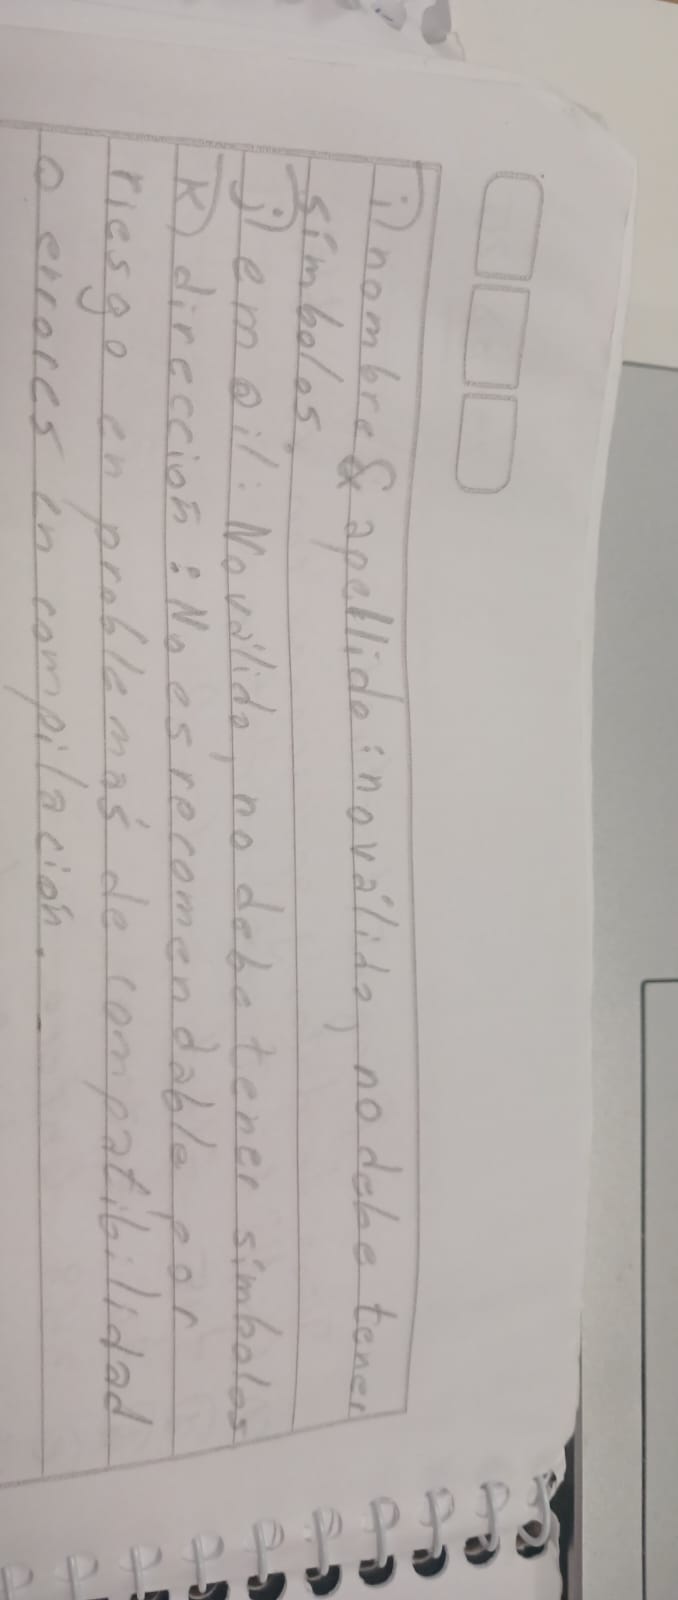 i) nombre & apellido: no válido, no debe tener
símbolos
j) em@il: No válido, no debe tener símbolos
k) dirección: No es recomendable por
riesgo en problemas de compatibilidad
o errores en compilación.